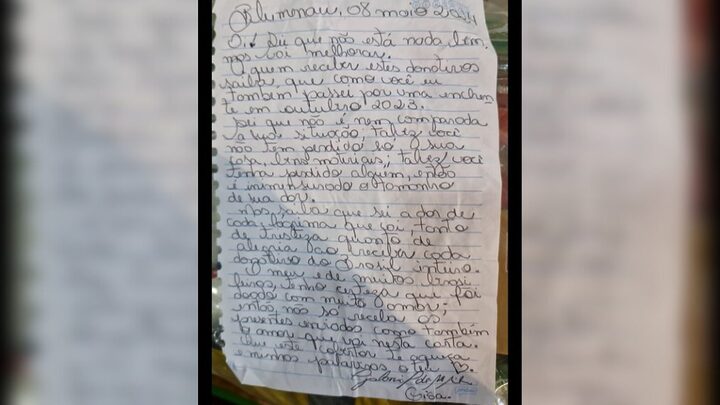 Blumenau, 08 maio 2024
Oi! Sei que não está nada bem,
mas vai melhorar.
A quem receber estes donativos
saiba que como você eu
também passei por uma enchen
te em outubro 2023.
Sei que não é nem comparada
a sua situação, talvez você
não tem perdido só a sua
casa, bens materiais; talvez você
tenha perdido alguém, então
é inmensurado o tamanho
de sua dor.
Mas, saiba que sei a dor de
cada lágrima que cai, tanto
de tristeza quanto de
alegria ao receber cada
donativo do Brasil inteiro.
O meu e de muitos brasi
leiros, tenho certeza que foi
doado com muito amor;
então não só receba os
presentes enviados como também
o amor que vai nesta carta.
Que este cobertor te aqueça
e minhas palavras o teu ♡.
Gisa.